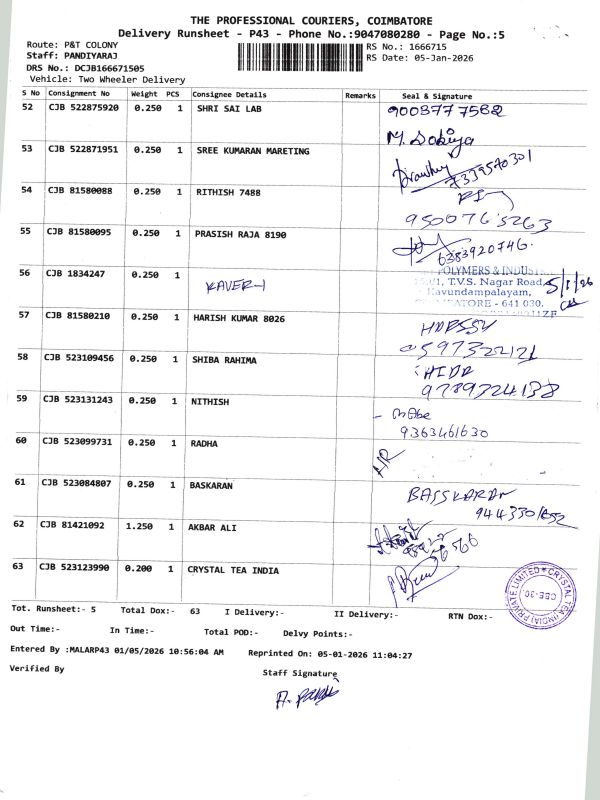 THE PROFESSIONAL COURIERS, COIMBATORE
Delivery Runsheet - P43 - Phone No.:9047080280 - Page No.:5
Route: P&T COLONY
Staff: PANDIYARAJ
DRS No.: DCJB166671505
Vehicle: Two Wheeler Delivery
RS No.: 1666715
RS Date: 05-Jan-2026
S No Consignment No Weight PCS Consignee Details Remarks Seal & Signature
52 CJB 522875920 0.250 1 SHRI SAI LAB 9003777582
53 CJB 522871951 0.250 1 SREE KUMARAN MARETING 7339570301
54 CJB 81580088 0.250 1 RITHISH 7488
9500765263
55 CJB 81580095 0.250 1 PRASISH RAJA 8190
6383920746.
56 CJB 1834247 0.250 1 KAVERI
POLYMERS & INDUST
T.V.S. Nagar Road, 5/1/26
Kavundampalayam,
COIMBATORE - 641 030.
57 CJB 81580210 0.250 1 HARISH KUMAR 8026
58 CJB 523109456 0.250 1 SHIBA RAHIMA
9789724138
59 CJB 523131243 0.250 1 NITHISH
9363461630
60 CJB 523099731 0.250 1 RADHA
61 CJB 523084807 0.250 1 BASKARAN BASSKARAN
62 CJB 81421092 1.250 1 AKBAR ALI
63 CJB 523123990 0.200 1 CRYSTAL TEA INDIA
CRYSTAL TEA (INDIA) PRIVATE LIMITED
CBE-30.
Tot. Runsheet:- 5 Total Dox:- 63 I Delivery:- II Delivery:- RTN Dox:-
Out Time:- In Time:- Total POD:- Delvy Points:-
Entered By :MALARP43 01/05/2026 10:56:04 AM Reprinted On: 05-01-2026 11:04:27
Verified By
Staff Signature